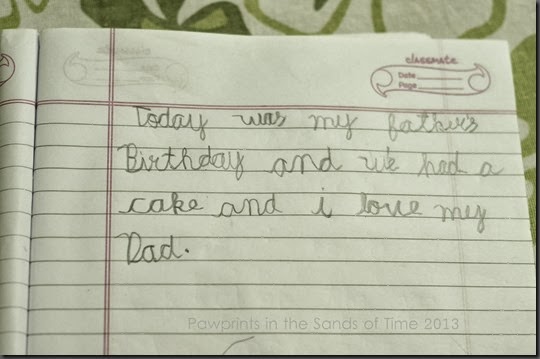 classmate
Date
Page
Today was my father's
Birthday and we had a
cake and i love my
Dad.
Pawprints in the Sands of Time 2013